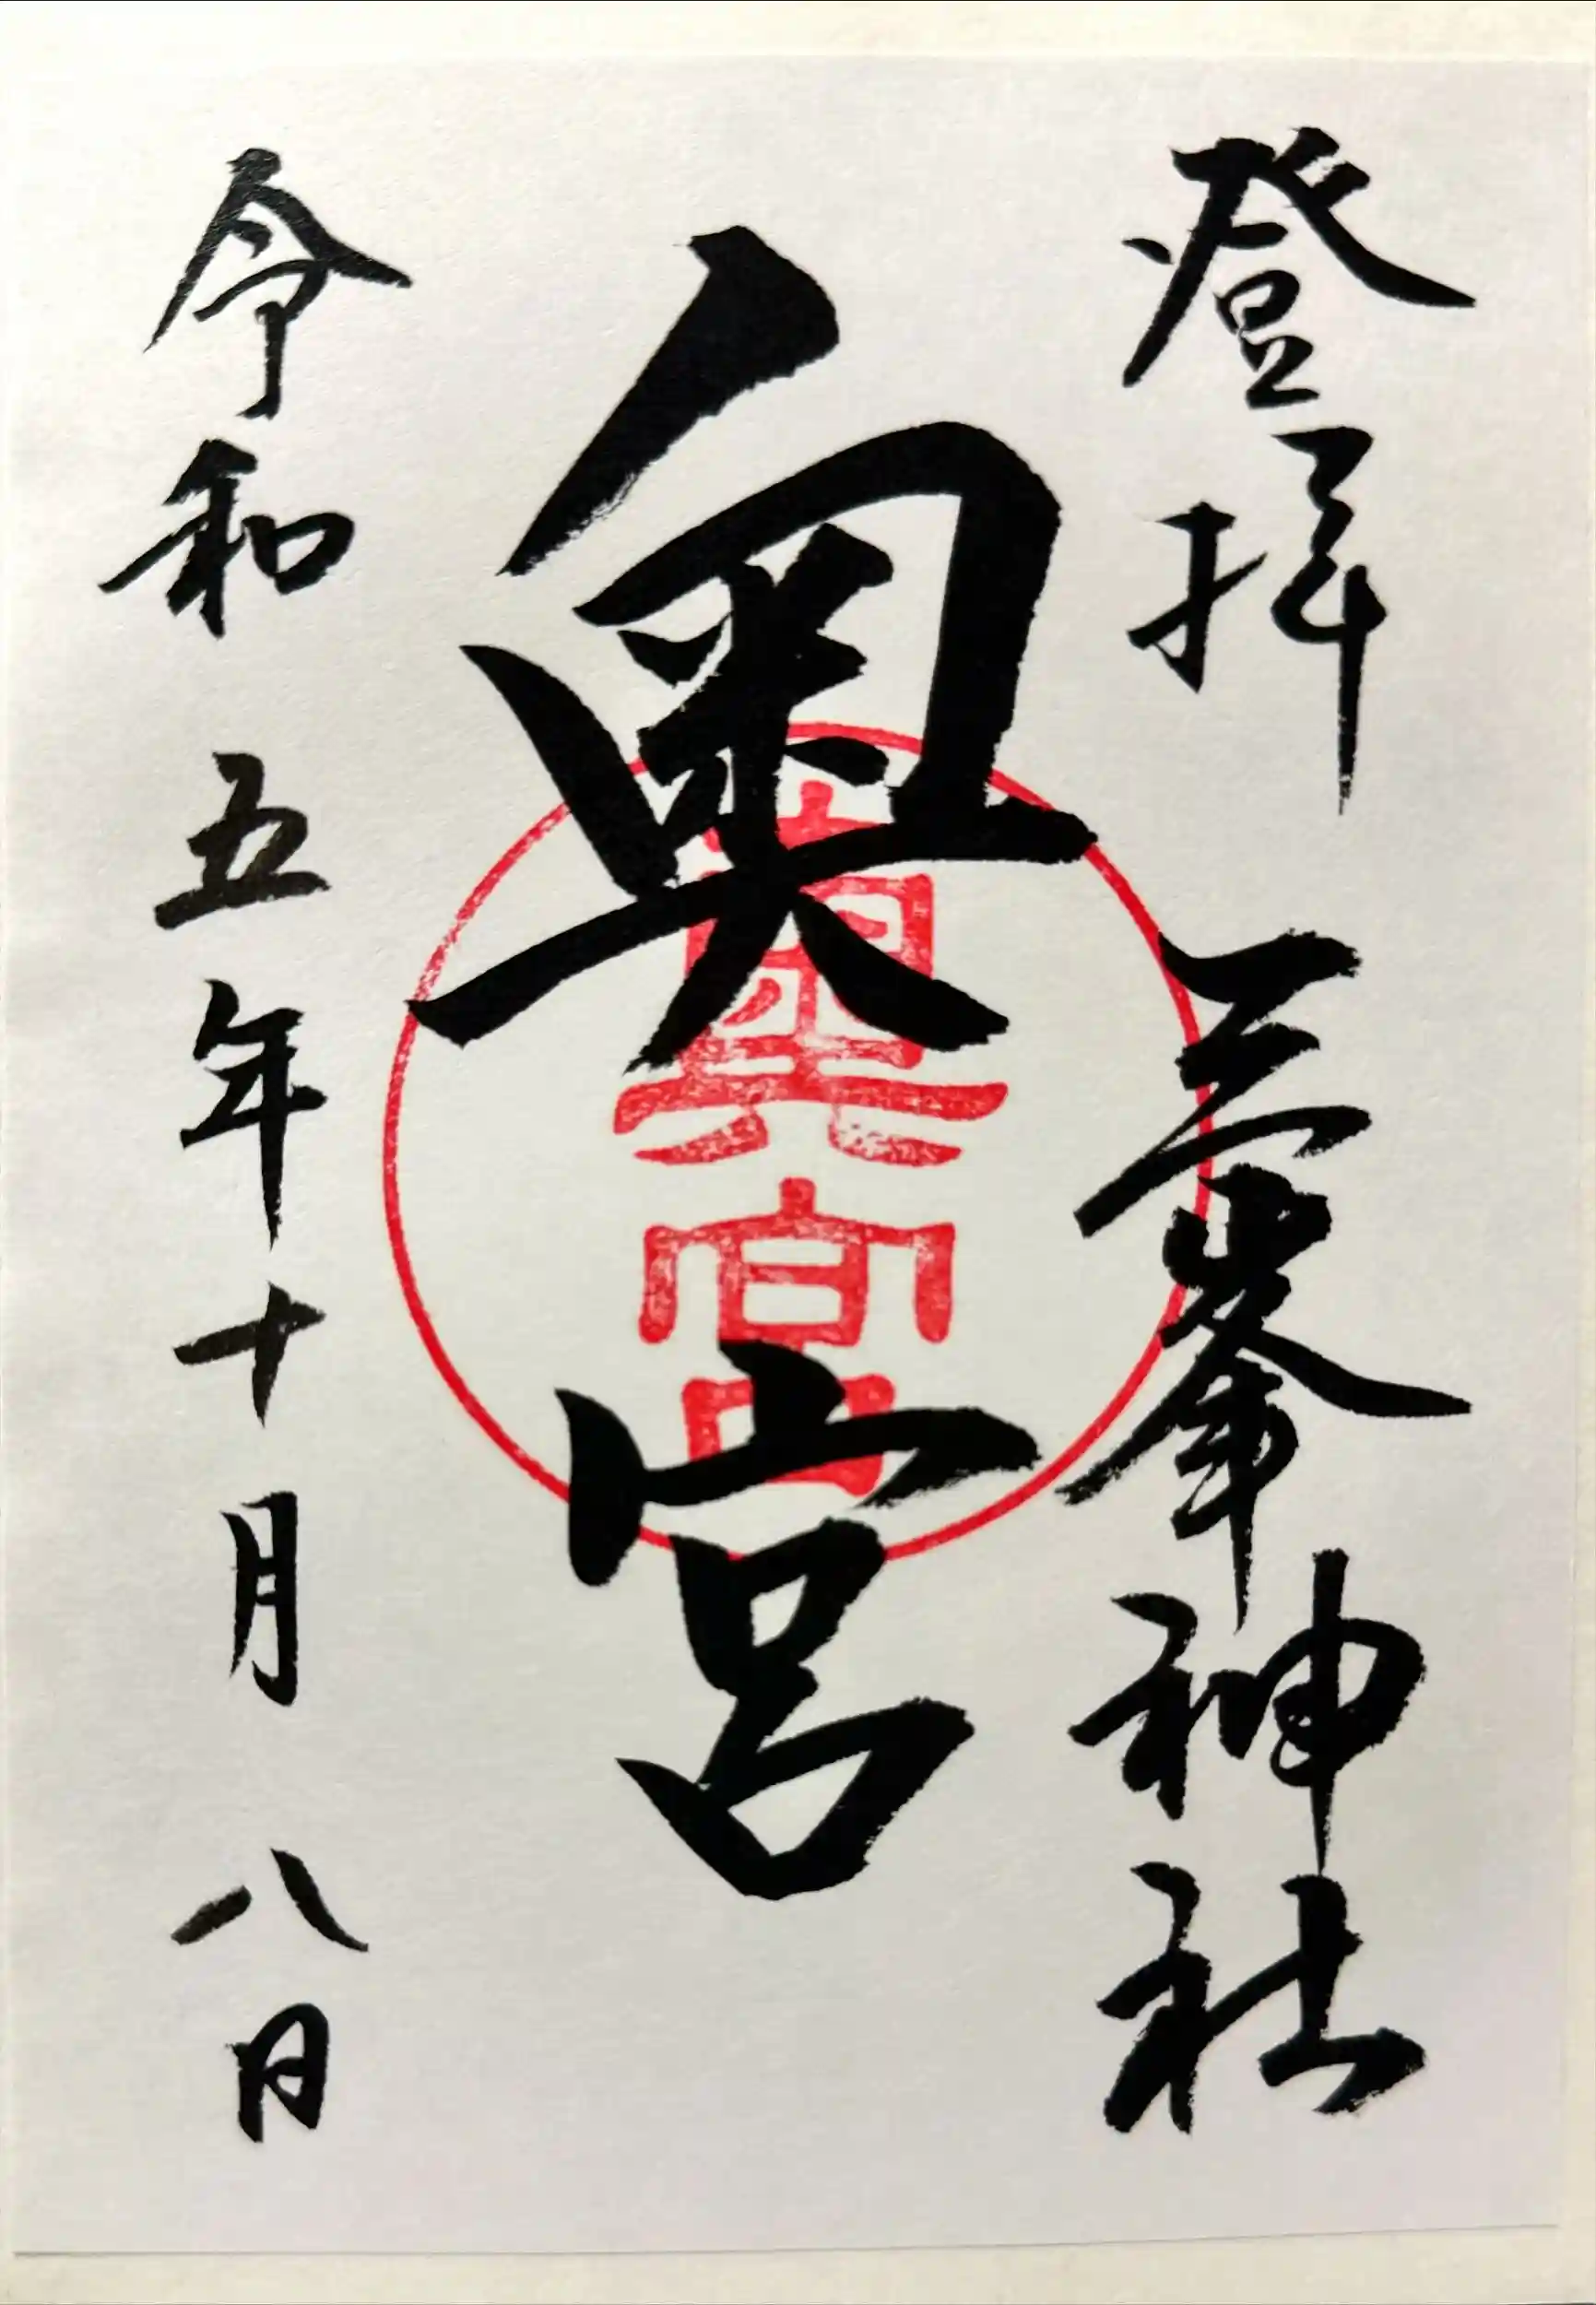 登拝 三峯神社
奥宮
奥宮
令和五年十月八日